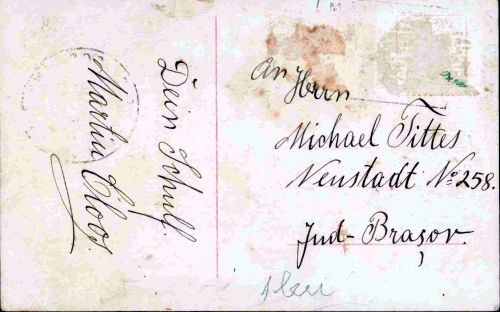 Dein Schull.
Martin Cloos.
An Herrn
Michael Tittes
Neustadt No 258.
Jud-Brașov.